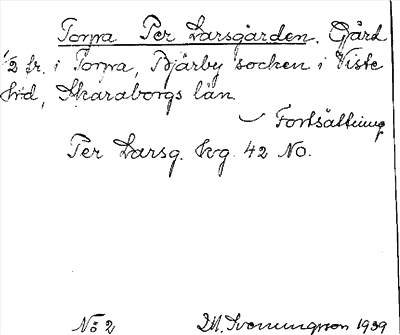 Torpa Per Larsgården. Gård
1/2 fr. i Torpa, Bjärby socken i Viste
hrd, Skaraborgs län.
Fortsättning
Per Larsg. kvg. 42 NO.
Nö 2 D.H. Svenningsson 1939